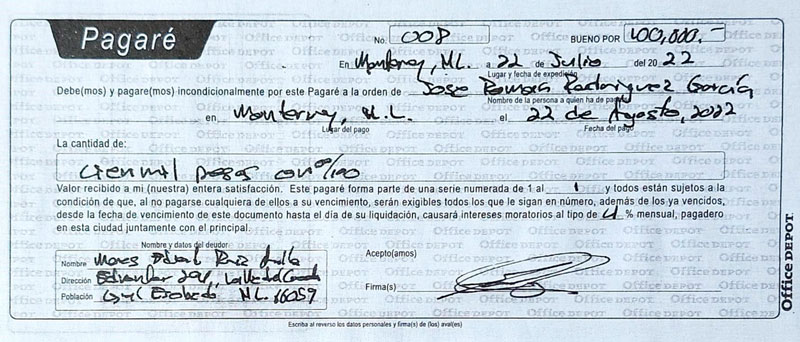 Pagaré
No. 008 BUENO POR 100,000.-
En Monterrey, N.L. a 22 de Julio del 20 22
Lugar y fecha de expedición
Debe(mos) y pagare(mos) incondicionalmente por este Pagaré a la orden de Jose Ramon Rodriguez García
Nombre de la persona a quien ha de pagarse
en Monterrey, N.L. el 22 de Agosto, 2022
Lugar del pago Fecha del pago
La cantidad de:
cien mil pesos con 00/100
Valor recibido a mi (nuestra) entera satisfacción. Este pagaré forma parte de una serie numerada de 1 al 1 y todos están sujetos a la
condición de que, al no pagarse cualquiera de ellos a su vencimiento, serán exigibles todos los que le sigan en número, además de los ya vencidos,
desde la fecha de vencimiento de este documento hasta el día de su liquidación, causará intereses moratorios al tipo de 4 % mensual, pagadero
en esta ciudad juntamente con el principal.
Nombre y datos del deudor
Nombre
Dirección
Población Gral Escobedo N.L. 66059
Acepto(amos)
Firma(s)
Escriba al reverso los datos personales y firma(s) de (los) aval(es)
Office DEPOT